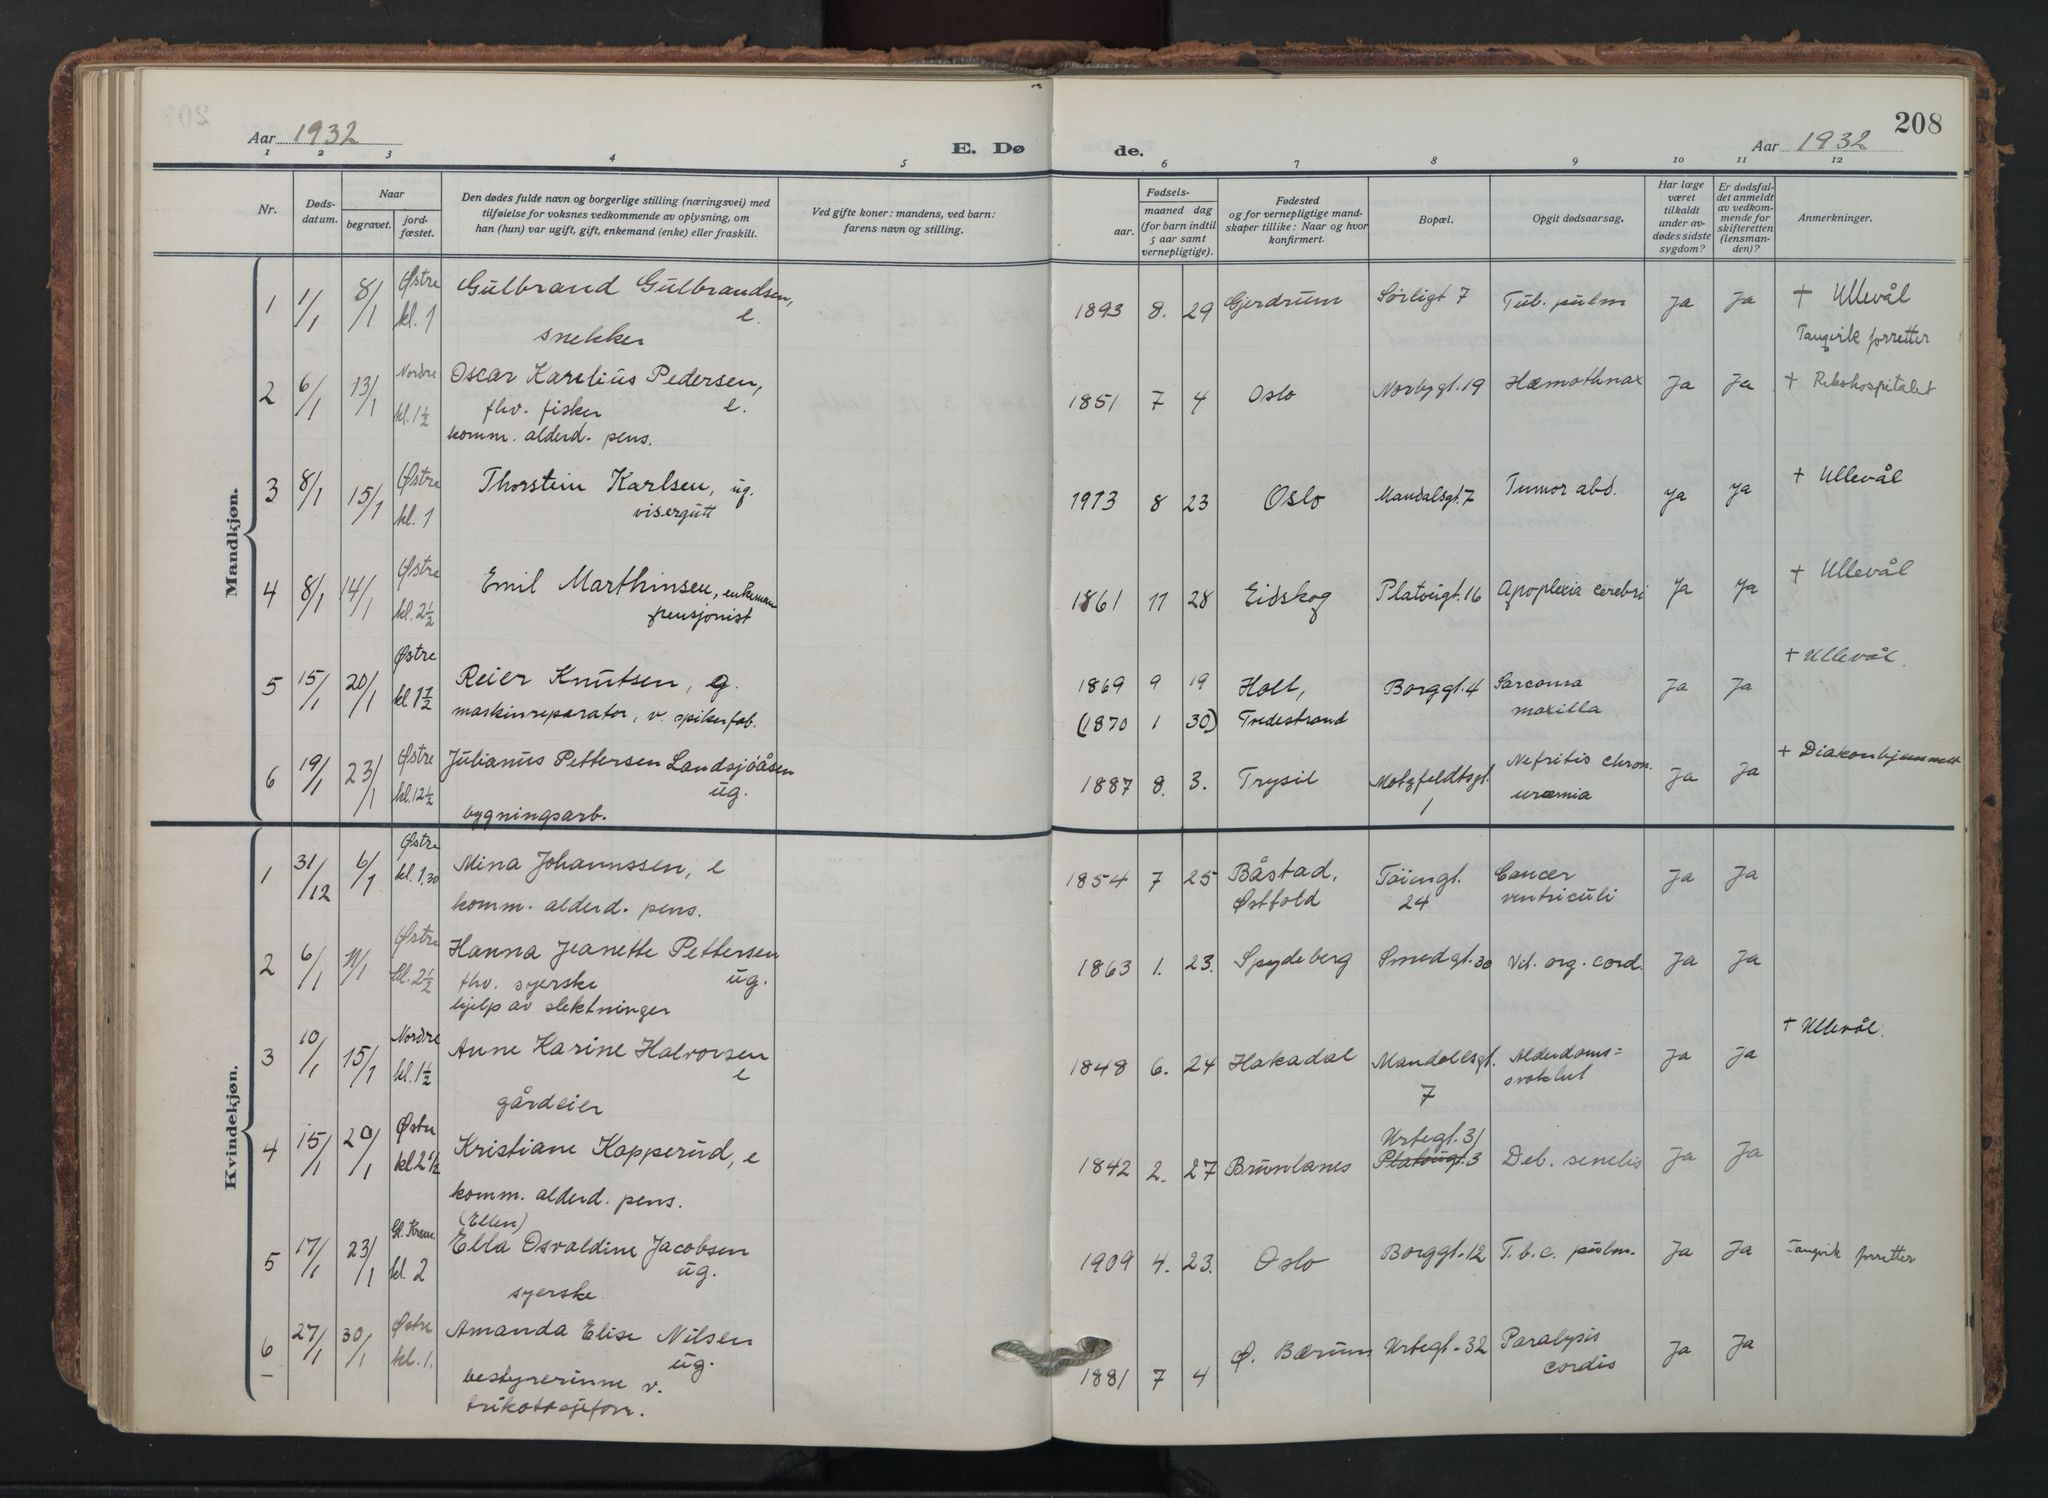 208
Aar 1932
E. Dø
de.
Aar 1932
1 2 3 4 5 6 7 8 9 10 11 12
Nr.
Døds-
datum.
Naar
begravet.
jord-
fæstet.
Den dødes fulde navn og borgerlige stilling (næringsvei) med
tilføielse for voksnes vedkommende av oplysning, om
han (hun) var ugift, gift, enkemand (enke) eller fraskilt.
Ved gifte koner: mandens, ved barn:
farens navn og stilling.
Fødsels-
aar.
maaned dag
(for barn indtil
5 aar samt
vernepligtige).
Fødested
og for vernepligtige mand-
skaper tillike: Naar og hvor
konfirmert.
Bopæl.
Opgit dødsaarsag.
Har læge
været
tilkaldt
under av-
dødes sidste
sygdom?
Er dødsfal-
det anmeldt
av vedkom-
mende for
skifteretten
(lensman-
den)?
Anmerkninger.
Mandkjøn.
1 1/1 8/1 Østre kl. 1 Gulbrand Gulbrandsen, e.
snekker
1893 8. 29 Gjerdrum Sørligt 7 Tub. pulm Ja Ja + Ullevål
Tangvik forretter
2 6/1 13/1 Nordre kl. 1½ Oscar Karelius Pedersen, e.
fhv. fisker
komm. alderd. pens.
1851 7 4 Oslo Norbygt. 19 Hæmothnax Ja Ja + Rikshospitalet
3 8/1 15/1 Østre kl. 1 Thorstein Karlsen, ug.
visergutt
1913 8 23 Oslo Mandalsgt. 7 Tumor abd. Ja Ja + Ullevål
4 8/1 14/1 Østre kl. 2½ Emil Marthinsen, enkeman
pensjonist
1861 11 28 Eidskog Platougt. 16 Apoplexia cerebri Ja Ja + Ullevål
5 15/1 20/1 Østre kl 1½ Reier Knutsen, g.
maskinreparatør, v. spikerfab.
1869 9 19 Holt, Borggt. 4 Sarcoma Ja Ja + Ullevål.
(1870 1 30) Tvedestrand maxilla
6 19/1 23/1 Østre kl. 12½ Julianus Pettersen Landsjöåsen
ug.
bygningsarb.
1887 8. 3. Trysil Motzfeldtsgt. 1 Nefritis chron. uræmia Ja Ja + Diakonhjemmet
Kvindekjøn.
1 31/12 6/1 Østre kl. 1,30 Mina Johannssen, e
komm. alderd. pens.
1854 7 25 Båstad, Østfold Töiengt. 24 Cancer ventriculi Ja Ja
2 6/1 11/1 Østre kl. 2½ Hanna Jeanette Pettersen
fhv. syerske ug.
hjelp av slektninger
1863 1. 23. Spydeberg Smedgt. 30 Vit. org. cord. Ja Ja
3 10/1 15/1 Nordre kl. 1½ Anne Karine Halvorsen
e
gårdeier
1848 6. 24 Hakadal Mandallsgt. 7 Alderdoms=
svakhet Ja Ja + Ullevål.
4 15/1 20/1 Østre kl 2½ Kristiane Kopperud, e
komm. alderd. pens.
1842 2. 27 Brunlanes Urtegt. 31
Platougt. 3 Deb. senilis Ja Ja
(Ellen)
5 17/1 23/1 Gl. Krem kl. 2 Ella Osvaldine Jacobsen
ug.
syerske
1909 4. 23. Oslo Borggt. 12 T.b.c. pulm. Ja Ja Tangvik forretter
6 27/1 30/1 Østre kl. 1. Amanda Elise Nilsen
ug.
bestyrerinne v.
trikotasjeforr.
1881 7 4 Ø. Bærum Urtegt. 32 Paralysis cordis Ja Ja